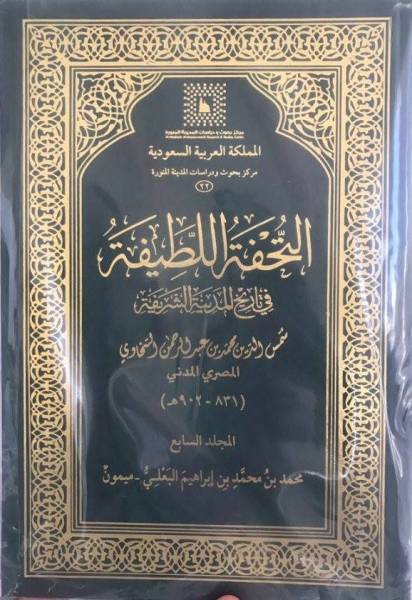 مركز بحوث و دراسات المدينة المنورة
Al-Madinah Al-Munawwarah Research & Studies Center
المملكة العربية السعودية
مركز بحوث ودراسات المدينة المنورة
٢٢
التُّحْفَةُ اللَّطِيفَةُ
في تاريخ المدينة الشريفة
شمس الدين محمد بن عبد الرحمن السخاوي
المصري المدني
(٨٣١ - ٩٠٢ هـ)
المجلد السابع
محمد بنُ محمَّدِ بنِ إبراهيمَ البَعْلِيُّ - ميمونٌ